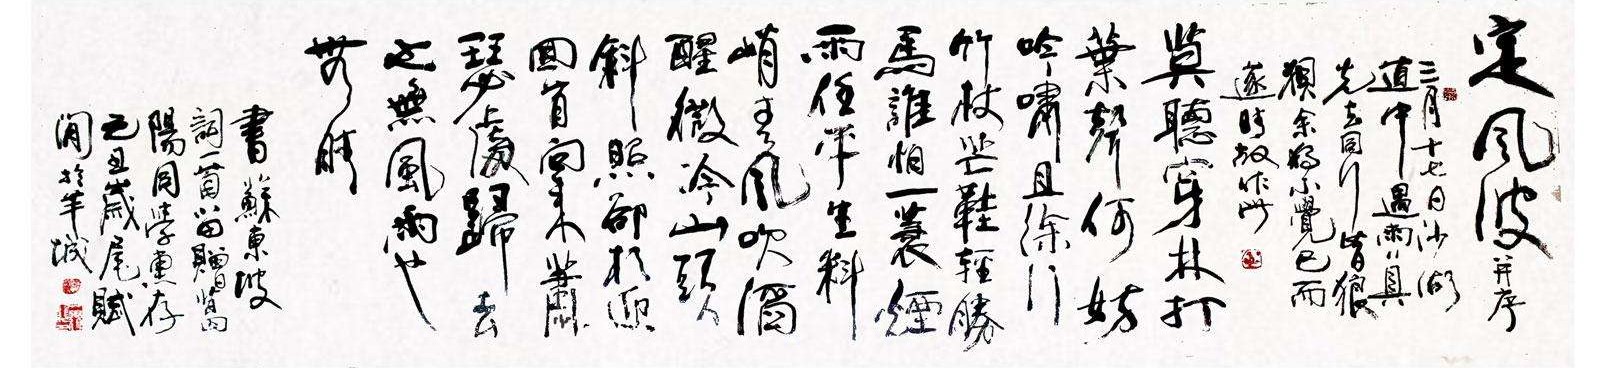 定風波并序
三月十七日沙湖
道中遇雨〻具
先去同行皆狼
狽余獨不覺已而
遂晴故作此
莫聽穿林打
葉聲何妨
吟嘯且徐行
竹杖芒鞋輕勝
馬誰怕一蓑煙
雨任平生料
峭春風吹酒
醒微冷山頭
斜照卻相迎
回首向來蕭
瑟處歸去
也無風雨也
無晴
書蘇東坡
詞一首留贈
陽同學惠存
己丑歲尾賦
閒於羊城